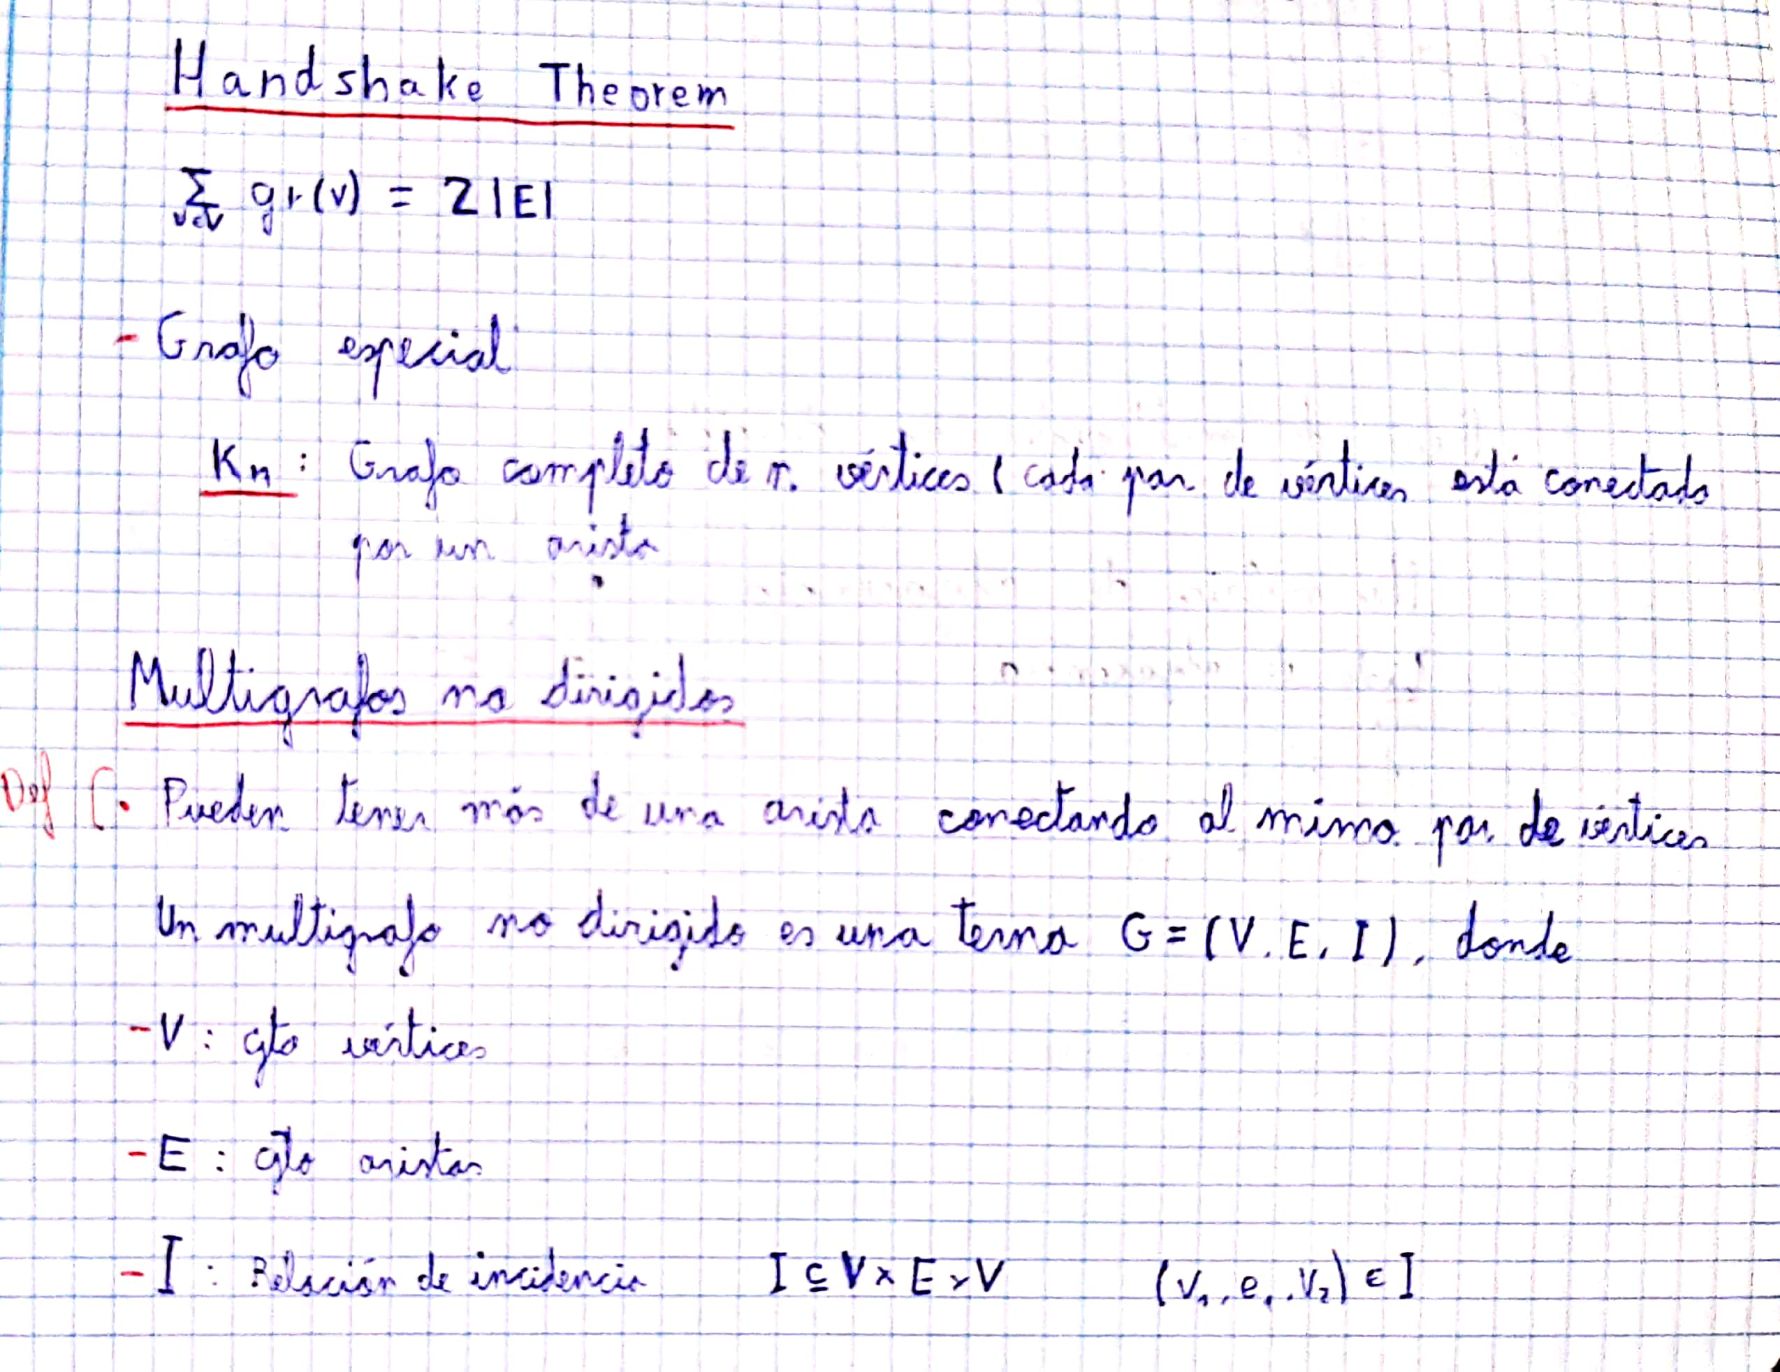 Handshake Theorem
∑ gr(v) = 2|E|
v∈V
- Grafo especial
Kn : Grafo completo de n vértices ( cada par de vértices está conectado
por un arista
Multigrafos no dirigidos
Def [. Pueden tener más de una arista conectando al mismo par de vértices
Un multigrafo no dirigido es una terna G = (V, E, I), donde
- V : cjto vértices
- E : cjto aristas
- I : Relación de incidencia I ⊆ V × E × V (v₁, e₁, v₂) ∈ I